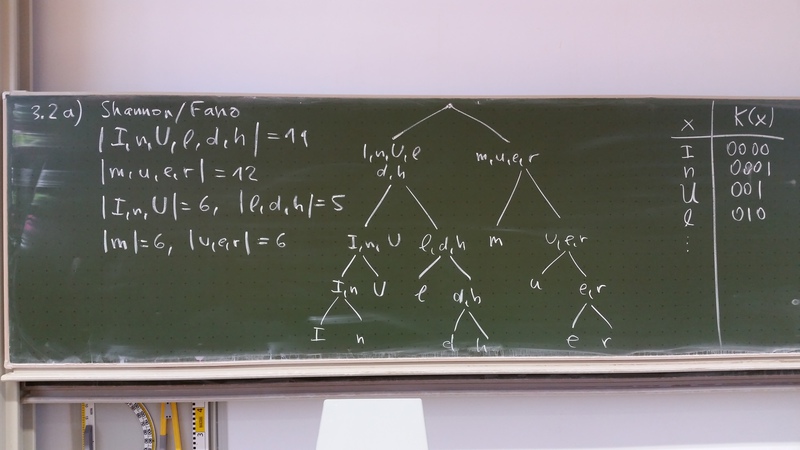 3.2a) Shannon/Fano
|I,n,U,l,d,h| = 11
|m,u,e,r| = 12
|I,n,U| = 6, |l,d,h| = 5
|m| = 6, |u,e,r| = 6
I,n,U,l
d,h
m,u,e,r
I,n,U
l,d,h
m
u,e,r
I,n
U
l
d,h
u
e,r
I
n
d
h
e
r
x K(x)
I 0000
n 0001
U 001
l 010
⋮